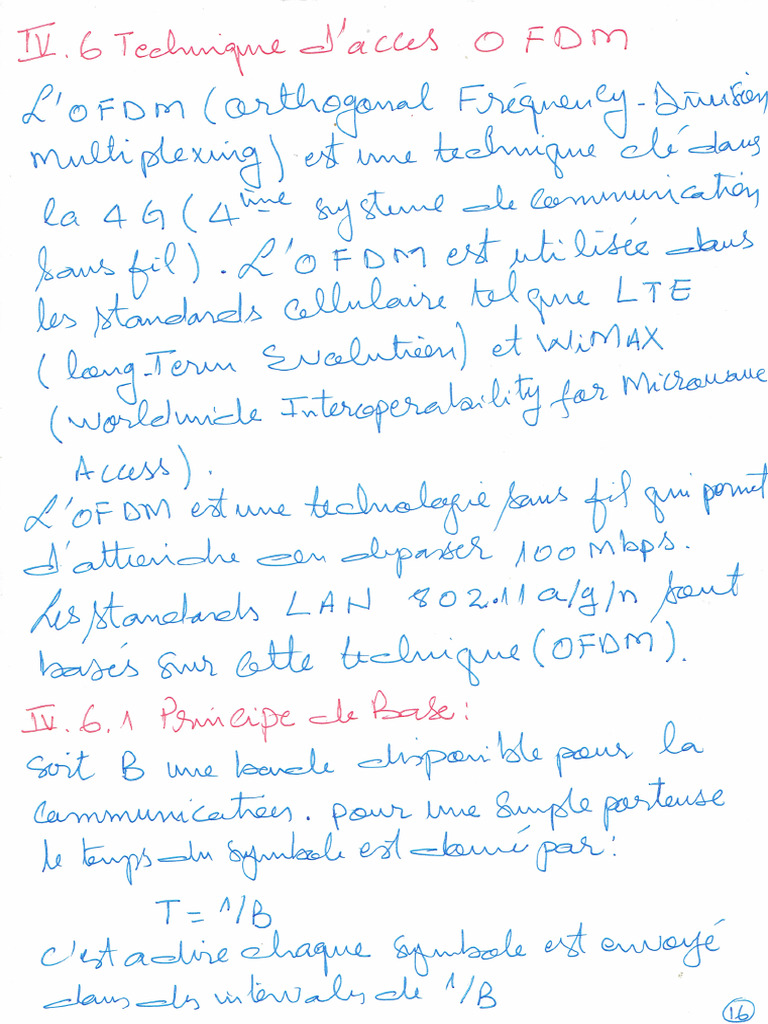 IV.6 Technique d'acces OFDM
L'OFDM (orthogonal Fréquency-Division
Multiplexing) est une technique clé dans
la 4G (4ème systeme de communication
sans fil). L'OFDM est utilisée dans
les standards cellulaire tel que LTE
(long-Term Evolution) et WiMAX
(Worldwide Interoperability for Microwave
Access).
L'OFDM est une technologie sans fil qui permet
d'attiendre ou dépasser 100 Mbps.
Les standards LAN 802.11 a/g/n sont
basés sur cette technique (OFDM).
IV.6.1 Principe de Base :
Soit B une bande disponible pour la
communication. pour une simple porteuse
le temps du symbole est donné par :
T = 1/B
c'est a dire chaque symbole est envoyé
dans des intervales de 1/B
16